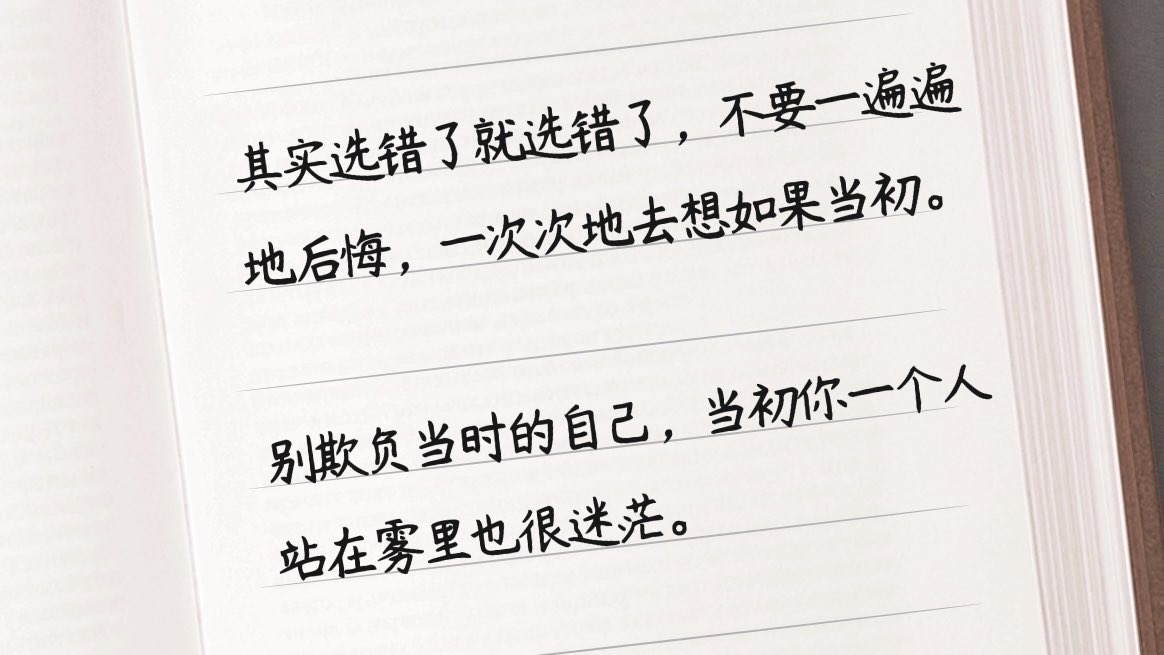 其实选错了就选错了，不要一遍遍
地后悔，一次次地去想如果当初。
别欺负当时的自己，当初你一个人
站在雾里也很迷茫。